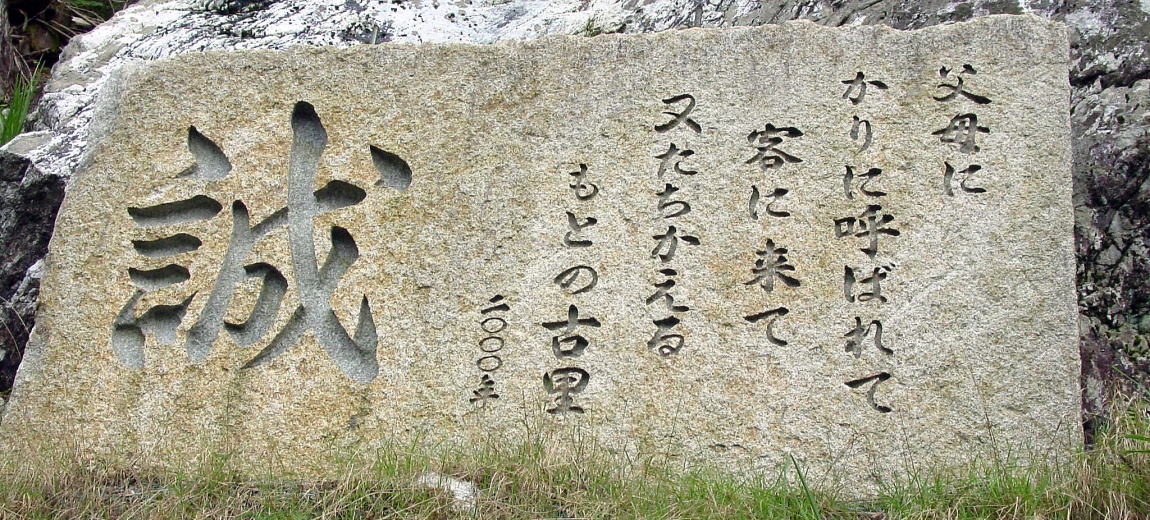 父母に
かりに呼ばれて
客に来て
又たちかえる
もとの古里
二〇〇〇年
誠